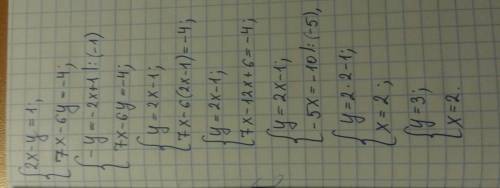 {2x-y=1;
7x-6y=-4;
{-y=-2x+1|:(-1)
7x-6y=-4;
{y=2x-1;
7x-6(2x-1)=-4;
{y=2x-1;
7x-12x+6=-4;
{y=2x-1;
-5x=-10|:(-5),
{y=2·2-1;
x=2;
{y=3;
x=2.